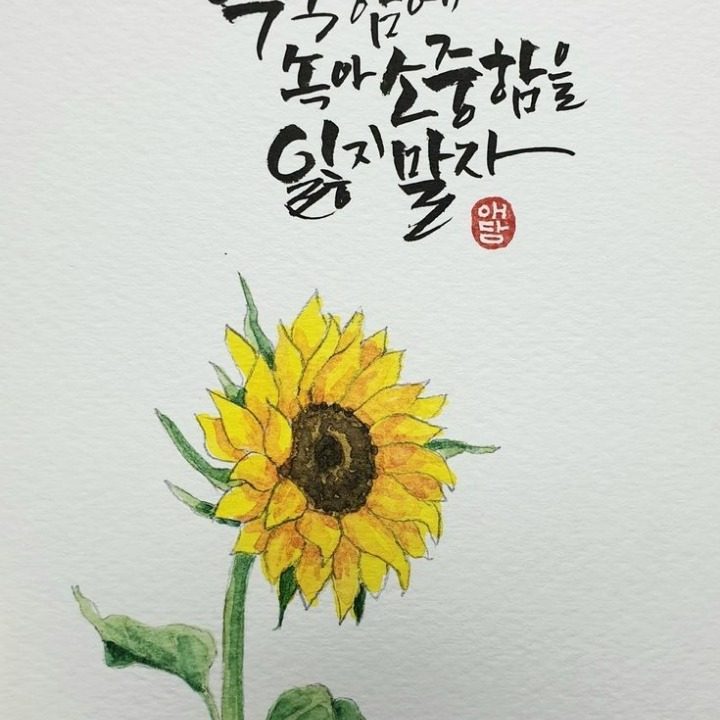 녹아 소중함을
잃지 말자
애담